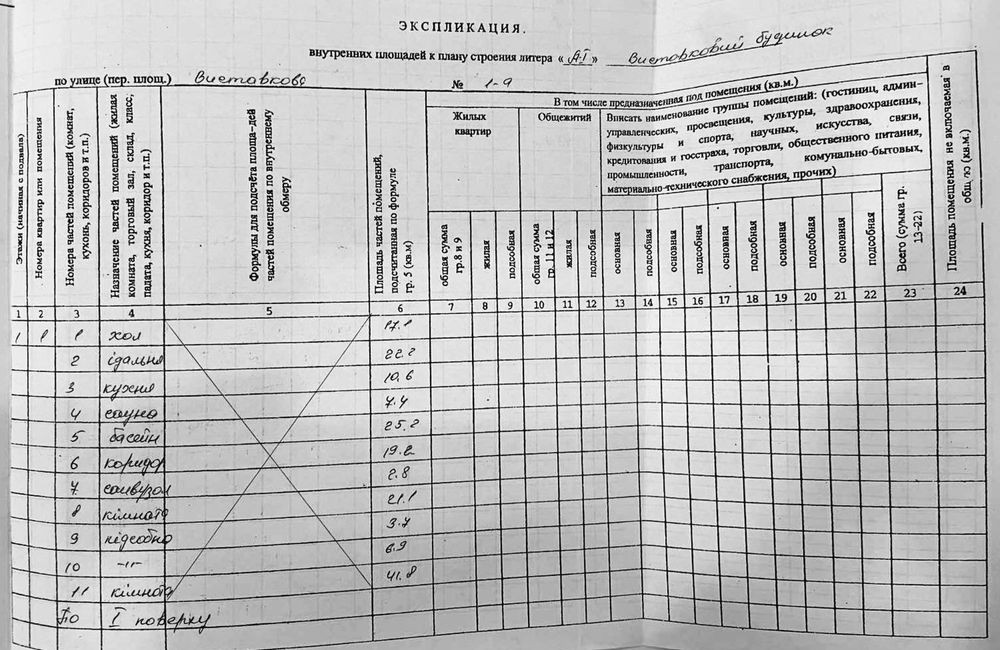 ЭКСПЛИКАЦИЯ.
внутренних площадей к плану строения литера « А-І » Виставковий будинок
по улице (пер. площ.) Виставкова № 1-9
Этажи (начиная с подвала)
Номера квартир или помещения
Номера частей помещений (комнат, кухонь, коридоров и т.п.)
Назначение частей помещений (жилая комната, торговый зал, склад, класс, падата, кухня, коридор и т.п.)
Формулы для подсчёта площа-дей частей помещения по внутреннему обмеру
Площадь частей помещений, подсчитанная по формуле гр. 5 (кв.м)
В том числе предназначенная под помещения (кв.м.)
Жилых квартир
Общежитий
Вписать наименование группы помещений: (гостиниц, админ-
управленческих, просвещения, культуры, здравоохранения,
физкультуры и спорта, научных, искусства, связи,
кредитования и госстраха, торговли, общественного питания,
промышленности, транспорта, комунально-бытовых,
материально-технического снабжения, прочих)
Площадь помещения не включаемая в общ. (кв.м.)
общая сумма гр.8 и 9
жилая
подсобная
общая сумма гр. 11 и 12
жилая
подсобная
основная
подсобная
основная
подсобная
основная
подсобная
основная
подсобная
основная
подсобная
Всего (сумма гр. 13-22)
1 2 3 4 5 6 7 8 9 10 11 12 13 14 15 16 17 18 19 20 21 22 23 24
1 1 1 хол 17.1
2 їдальня 22.2
3 кухня 10.6
4 сауна 7.4
5 басейн 25.2
6 коридор 19.2
7 санвузол 2.8
8 кімната 21.1
9 підсобна 3.7
10 -"- 6.9
11 кімната 41.8
По І поверху